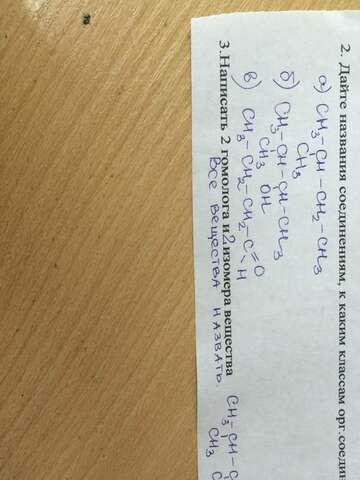 2. Дайте названия соединениям, к каким классам орг.соедин
а) CH3-CH-CH2-CH3
CH3
б) CH3-CH-CH-CH3
CH3 OH
в) CH3-CH2-CH2-C=O
H
3.Написать 2 гомолога и 2 изомера вещества CH3-CH-C
CH3 C
Все вещества назвать.